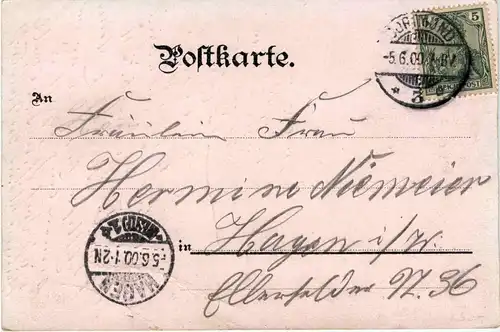 DORTMUND
5.6.00.
* 3 c
5
Postkarte.
An
Fräulein Frau
Hermine Niemeier
in Hagen i/w.
Elberfelder N. 36
HAGEN
5.6.00.1-2N